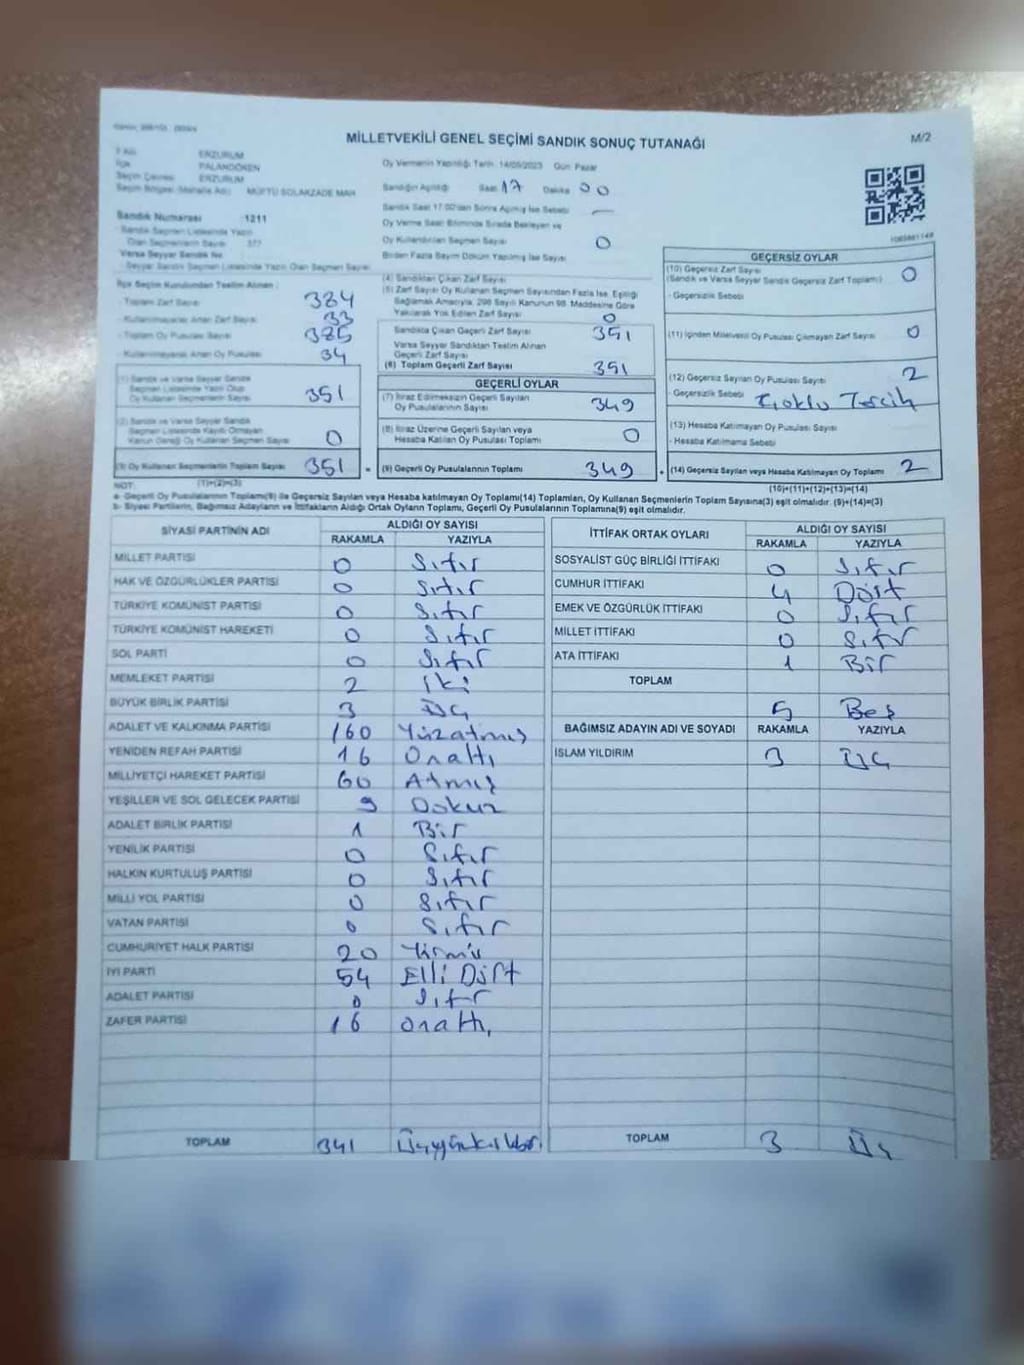 MİLLETVEKİLİ GENEL SEÇİMİ SANDIK SONUÇ TUTANAĞI
M/2
ERZURUM
İlçe PALANDÖKEN
Seçim Çevresi ERZURUM
Seçim Bölgesi (Mahalle Adı) MÜFTÜ SOLAKZADE MAH
Oy Vermenin Yapıldığı Tarih 14/05/2023 Gün Pazar
Sandığın Açıldığı Saat 17 Dakika 00
Sandık Saat 17.00'dan Sonra Açılmış İse Sebebi —
Oy Verme Saati Bitiminde Sırada Bekleyen ve
Oy Kullandırılan Seçmen Sayısı 0
Birden Fazla Sayım Döküm Yapılmış İse Sayısı
Sandık Numarası 1211
Sandık Seçmen Listesinde Yazılı
Olan Seçmenlerin Sayısı 377
Varsa Seyyar Sandık No
Seyyar Sandık Seçmen Listesinde Yazılı Olan Seçmen Sayısı
İlçe Seçim Kurulundan Teslim Alınan :
- Toplam Zarf Sayısı 384
- Kullanılmayarak Artan Zarf Sayısı 33
- Toplam Oy Pusulası Sayısı 385
- Kullanılmayarak Artan Oy Pusulası 34
(1) Sandık ve Varsa Seyyar Sandık
Seçmen Listesinde Yazılı Olup
Oy Kullanan Seçmenlerin Sayısı 351
(2) Sandık ve Varsa Seyyar Sandık
Seçmen Listesinde Kayıtlı Olmayan
Kanun Gereği Oy Kullanan Seçmen Sayısı 0
(3) Oy Kullanan Seçmenlerin Toplam Sayısı 351
(1)+(2)=(3)
(4) Sandıktan Çıkan Zarf Sayısı
(5) Zarf Sayısı Oy Kullanan Seçmen Sayısından Fazla İse, Eşitliği
Sağlamak Amacıyla, 298 Sayılı Kanunun 98. Maddesine Göre
Yakılarak Yok Edilen Zarf Sayısı 0
Sandıkta Çıkan Geçerli Zarf Sayısı 351
Varsa Seyyar Sandıktan Teslim Alınan
Geçerli Zarf Sayısı
(6) Toplam Geçerli Zarf Sayısı 351
GEÇERLİ OYLAR
(7) İtiraz Edilmeksizin Geçerli Sayılan
Oy Pusulalarının Sayısı 349
(8) İtiraz Üzerine Geçerli Sayılan veya
Hesaba Katılan Oy Pusulası Toplamı 0
(9) Geçerli Oy Pusulalarının Toplamı 349
GEÇERSİZ OYLAR
(10) Geçersiz Zarf Sayısı 0
(Sandık ve Varsa Seyyar Sandık Geçersiz Zarf Toplamı)
- Geçersizlik Sebebi
(11) İçinden Milletvekili Oy Pusulası Çıkmayan Zarf Sayısı 0
(12) Geçersiz Sayılan Oy Pusulası Sayısı 2
- Geçersizlik Sebebi Çoklu Tercih
(13) Hesaba Katılmayan Oy Pusulası Sayısı
- Hesaba Katılmama Sebebi
(14) Geçersiz Sayılan veya Hesaba Katılmayan Oy Toplamı 2
(10)+(11)+(12)+(13)=(14)
NOT:
a- Geçerli Oy Pusulalarının Toplamı(9) ile Geçersiz Sayılan veya Hesaba katılmayan Oy Toplamı(14) Toplamları, Oy Kullanan Seçmenlerin Toplam Sayısına(3) eşit olmalıdır. (9)+(14)=(3)
b- Siyasi Partilerin, Bağımsız Adayların ve İttifakların Aldığı Ortak Oyların Toplamı, Geçerli Oy Pusulalarının Toplamına(9) eşit olmalıdır.
SİYASİ PARTİNİN ADI ALDIĞI OY SAYISI
RAKAMLA YAZIYLA
MİLLET PARTİSİ 0 Sıfır
HAK VE ÖZGÜRLÜKLER PARTİSİ 0 Sıfır
TÜRKİYE KOMÜNİST PARTİSİ 0 Sıfır
TÜRKİYE KOMÜNİST HAREKETİ 0 Sıfır
SOL PARTİ 0 Sıfır
MEMLEKET PARTİSİ 2 İki
BÜYÜK BİRLİK PARTİSİ 3 Üç
ADALET VE KALKINMA PARTİSİ 160 Yüzatmış
YENİDEN REFAH PARTİSİ 16 Onaltı
MİLLİYETÇİ HAREKET PARTİSİ 60 Atmış
YEŞİLLER VE SOL GELECEK PARTİSİ 9 Dokuz
ADALET BİRLİK PARTİSİ 1 Bir
YENİLİK PARTİSİ 0 Sıfır
HALKIN KURTULUŞ PARTİSİ 0 Sıfır
MİLLİ YOL PARTİSİ 0 Sıfır
VATAN PARTİSİ 0 Sıfır
CUMHURİYET HALK PARTİSİ 20 Yirmi
İYİ PARTİ 54 Elli Dört
ADALET PARTİSİ 0 Sıfır
ZAFER PARTİSİ 16 Onaltı
TOPLAM 341
İTTİFAK ORTAK OYLARI ALDIĞI OY SAYISI
RAKAMLA YAZIYLA
SOSYALİST GÜÇ BİRLİĞİ İTTİFAKI 0 Sıfır
CUMHUR İTTİFAKI 4 Dört
EMEK VE ÖZGÜRLÜK İTTİFAKI 0 Sıfır
MİLLET İTTİFAKI 0 Sıfır
ATA İTTİFAKI 1 Bir
TOPLAM
5 Beş
BAĞIMSIZ ADAYIN ADI VE SOYADI RAKAMLA YAZIYLA
İSLAM YILDIRIM 3 Üç
TOPLAM 3 Üç